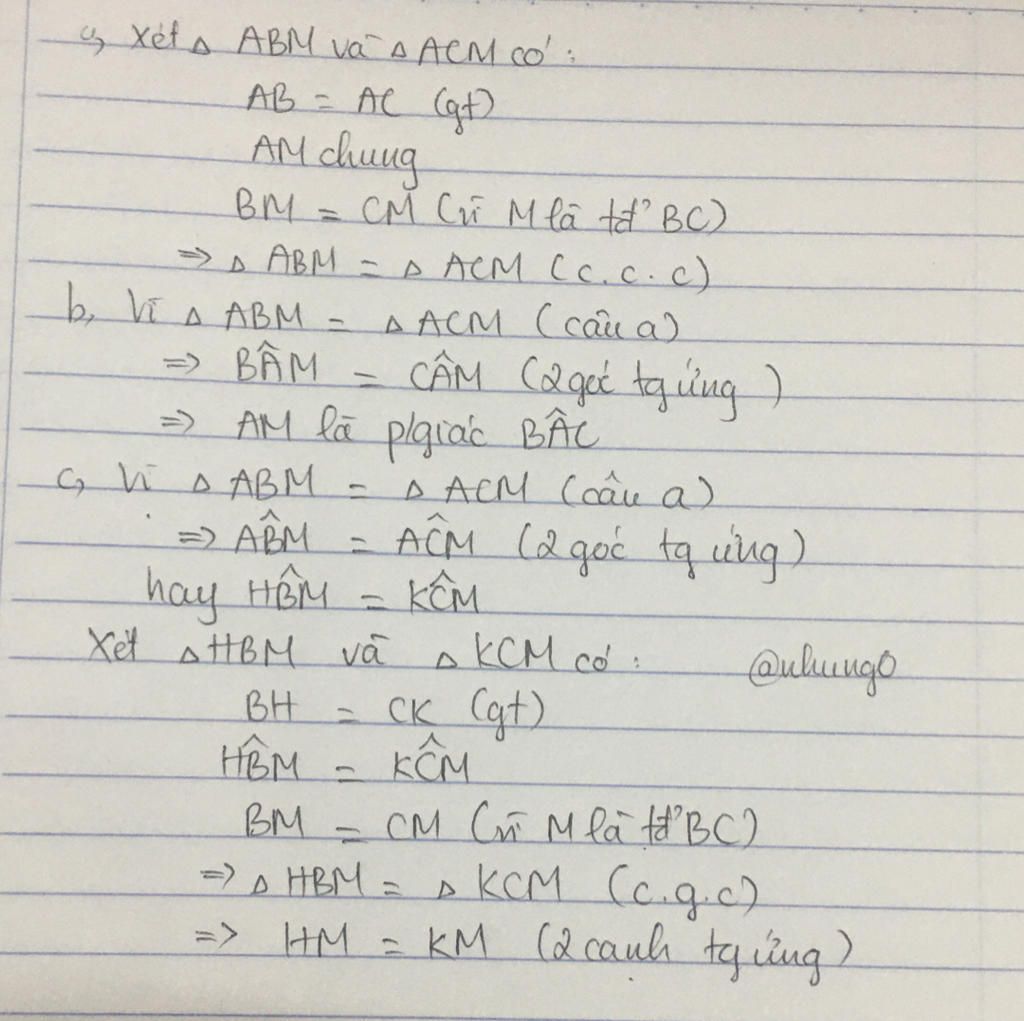 a, Xét Δ ABM và Δ ACM có :
AB = AC (gt)
AM chung
BM = CM (vì M là tđ' BC)
=> Δ ABM = Δ ACM (c.c.c)
b, Vì Δ ABM = Δ ACM (câu a)
=> BÂM = CÂM (2 góc tg ứng)
=> AM là p/giác BÂC
c, Vì Δ ABM = Δ ACM (câu a)
=> AB̂M = AĈM (2 góc tg ứng)
hay HB̂M = KĈM
Xét Δ HBM và Δ KCM có : @nhung0
BH = CK (gt)
HB̂M = KĈM
BM = CM (vì M là tđ' BC)
=> Δ HBM = Δ KCM (c.g.c)
=> HM = KM (2 cạnh tg ứng)